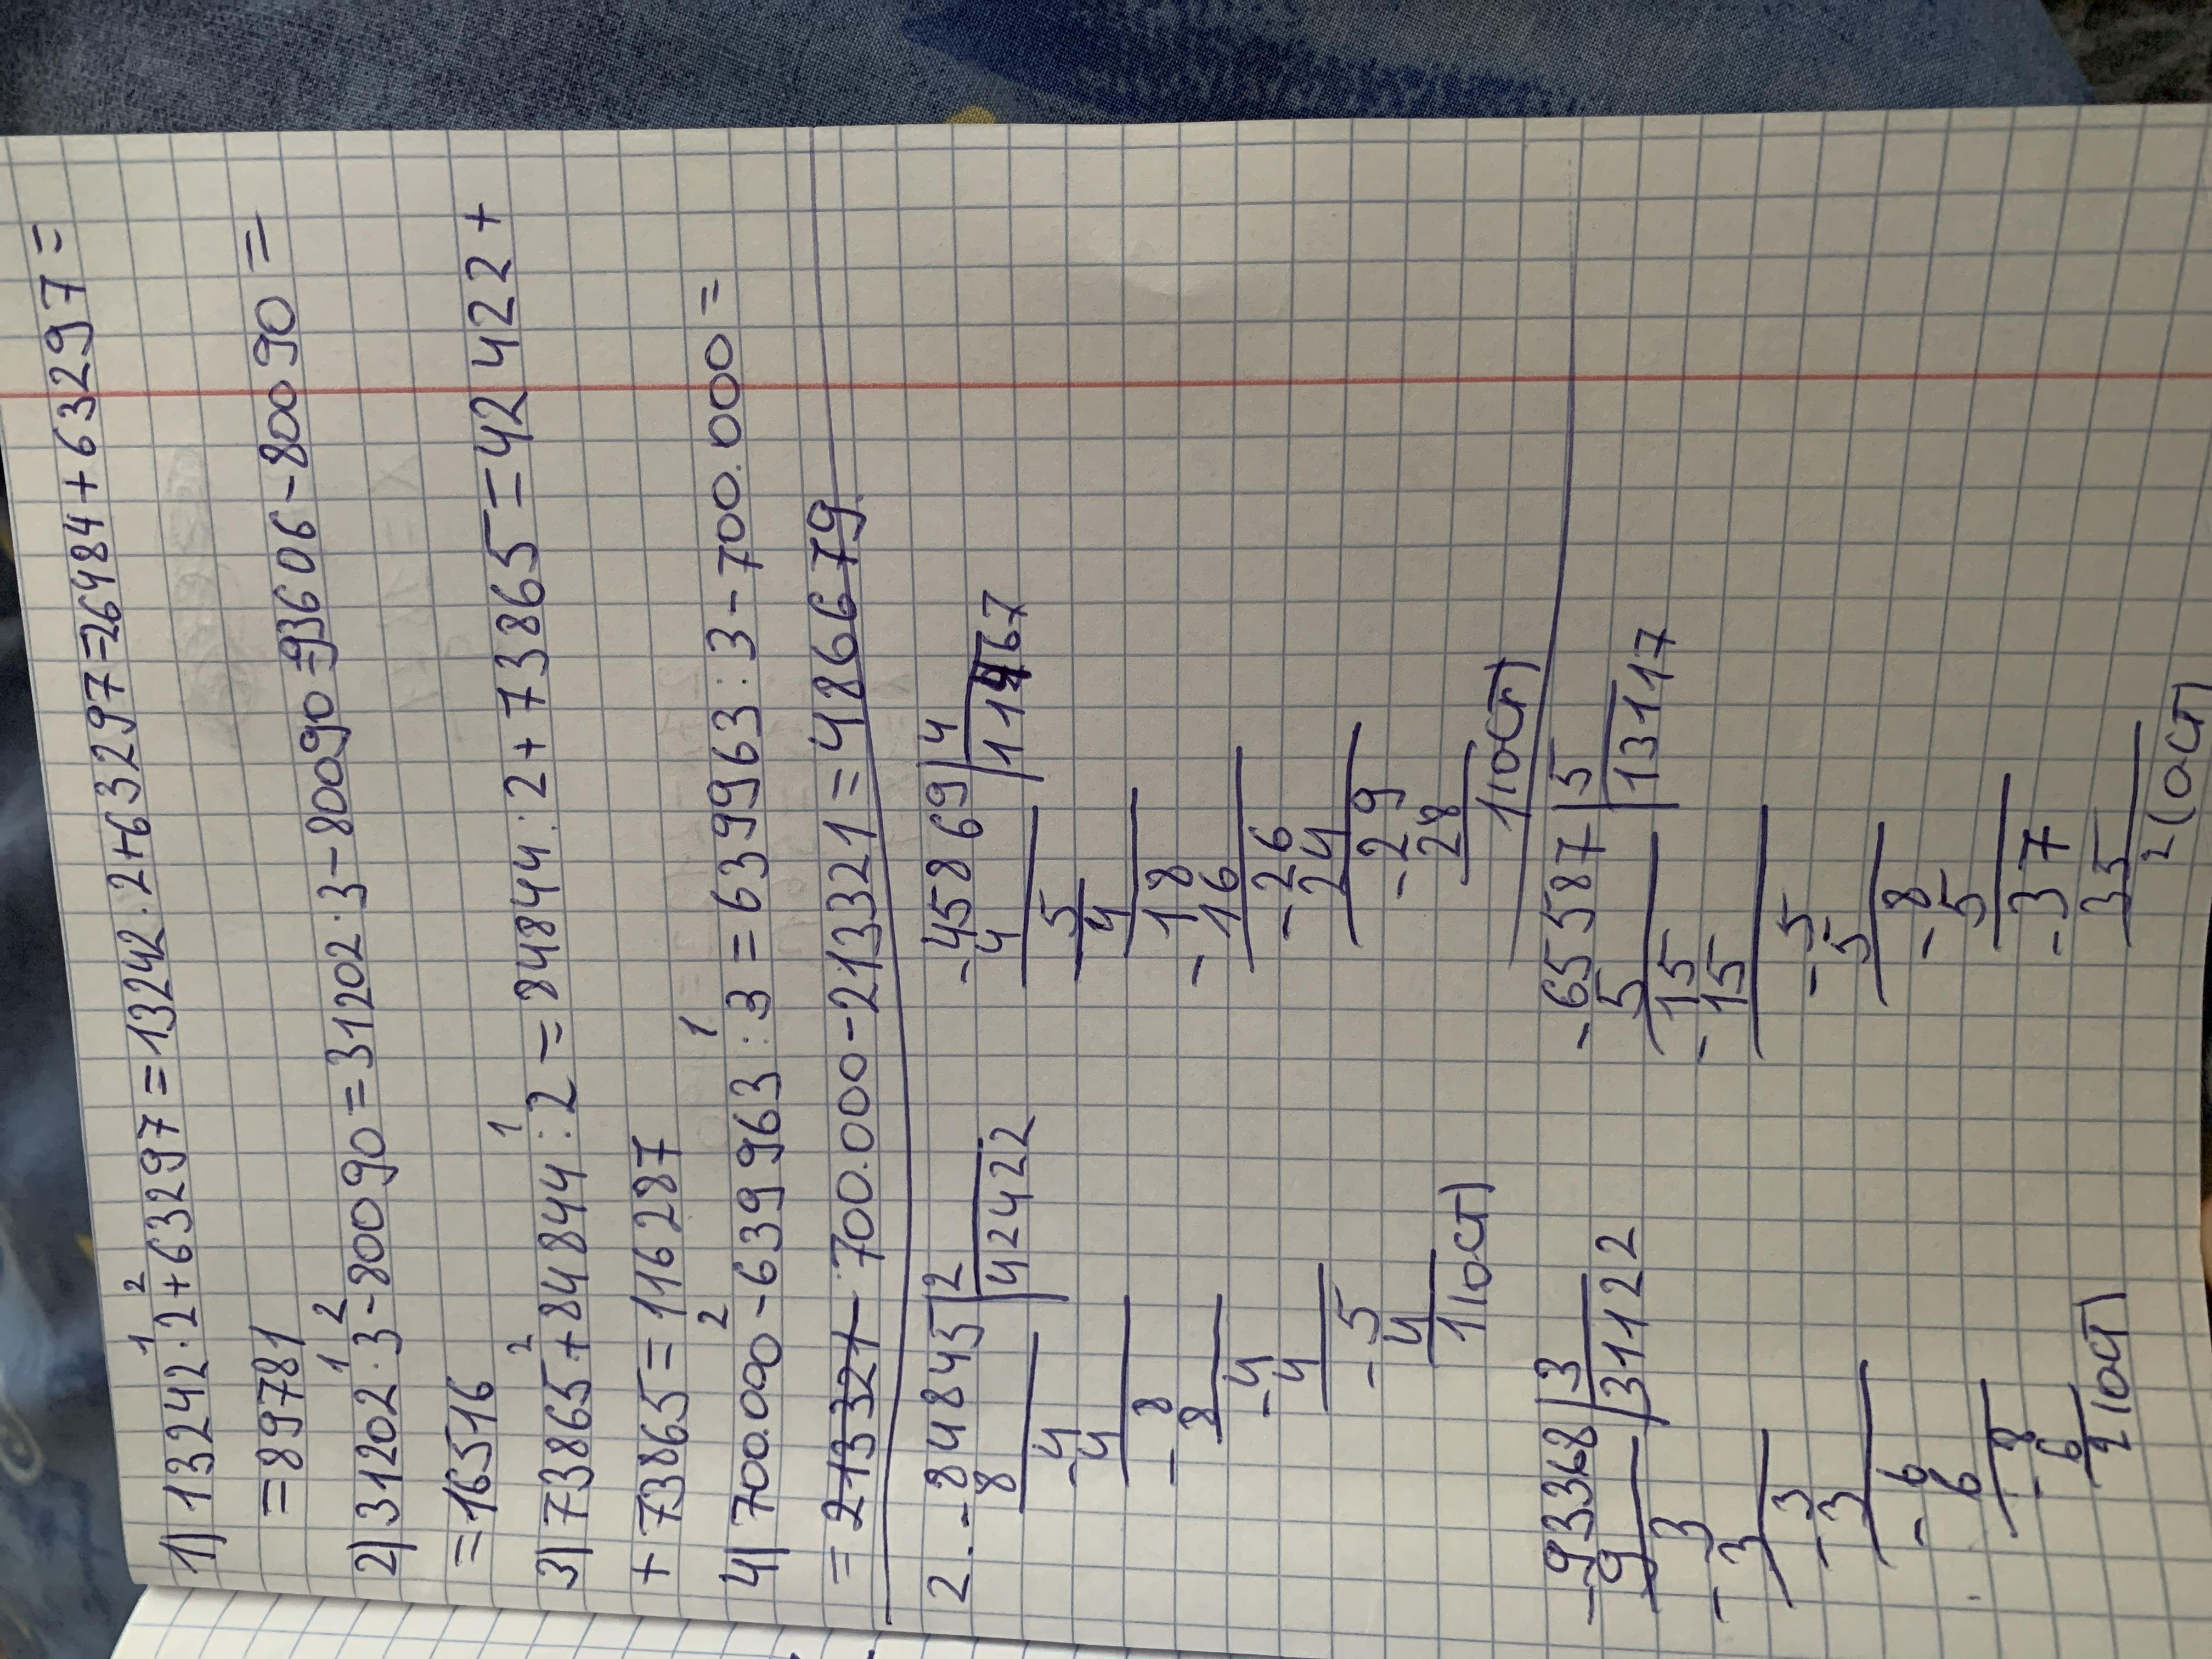 1) 13242·2+63297=13242·2+63297=26484+63297=
1 2
=89781
1 2
2) 31202·3-80090=31202·3-80090=93606-80090=
=16516
2 1
3) 73865+84844:2=84844:2+73865=42422+
+73865=116287
2 1
4) 700.000-639963:3=639963:3-700.000=
=213321 700.000-213321=486679
2. -84845|2 -45869|4
8 42422 4 11467
-4 5
4 4
-8 -18
8 16
-4 -26
4 24
-5 -29
4 28
1(ост) 1(ост)
-93368|3 -65587|5
9 31122 5 13117
-3 -15
3 15
-3 -5
3 5
-6 -8
6 5
-8 -37
6 35
2(ост) 2(ост)